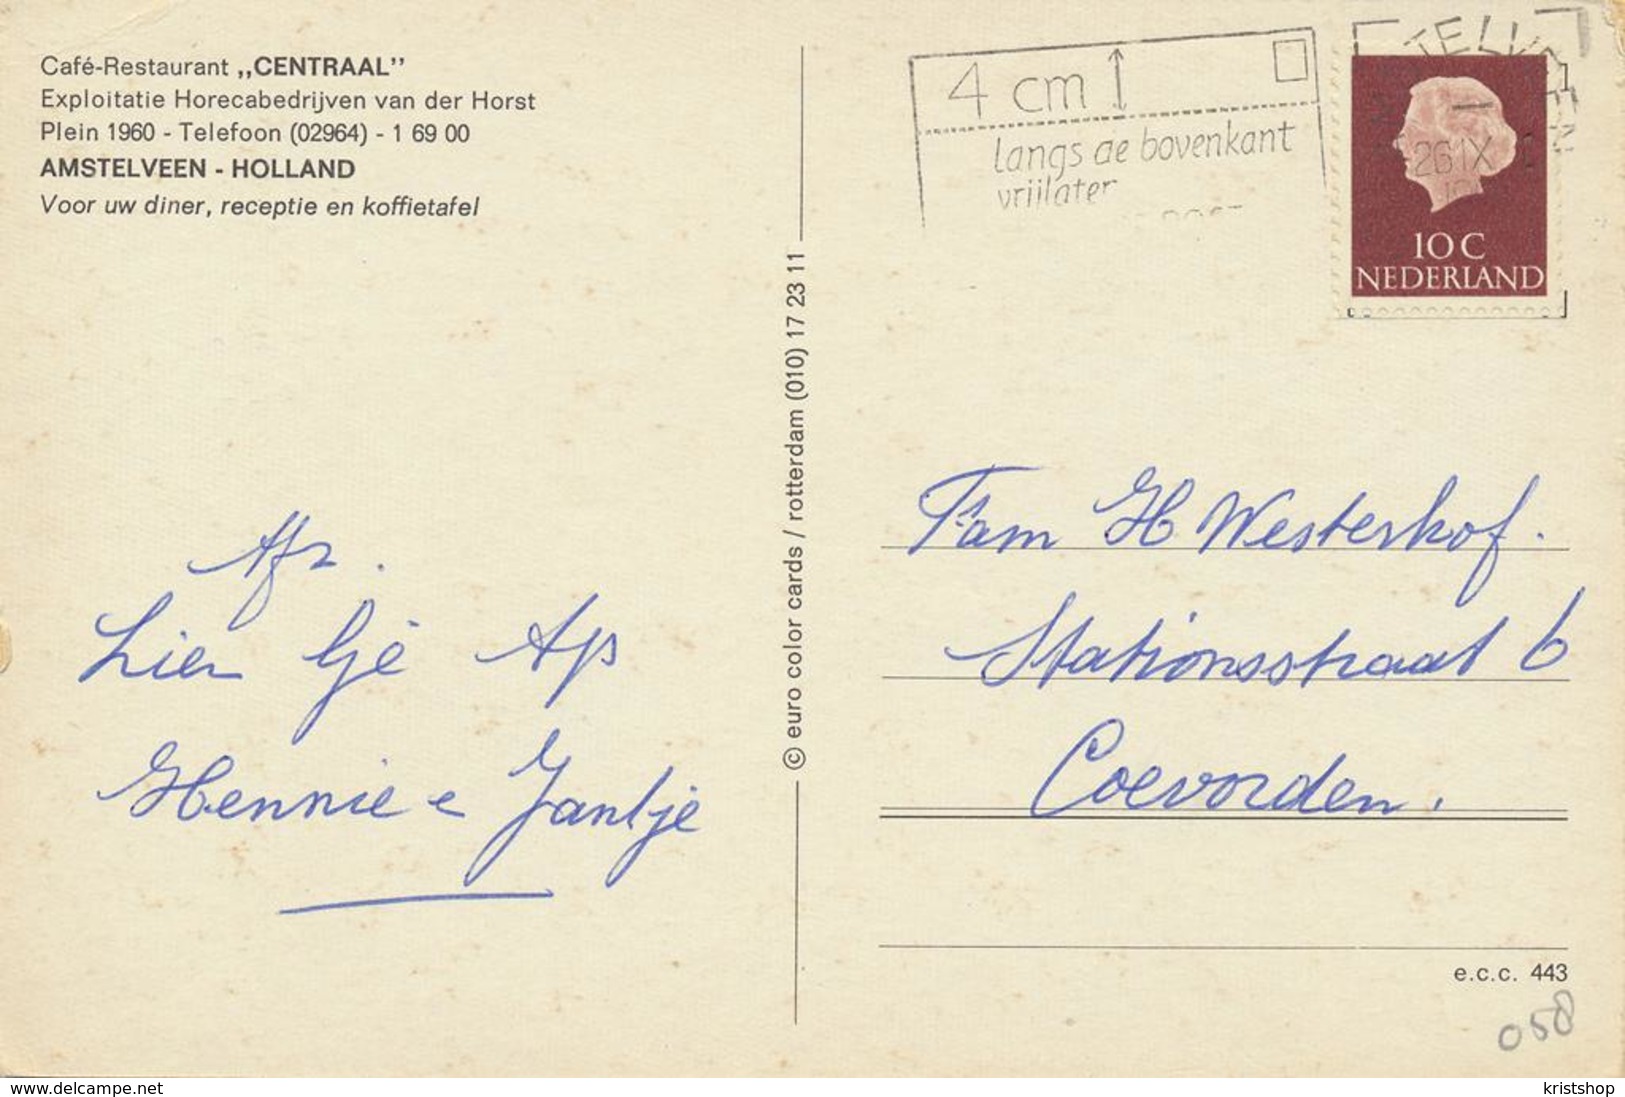 Café-Restaurant „CENTRAAL”
Exploitatie Horecabedrijven van der Horst
Plein 1960 - Telefoon (02964) - 1 69 00
AMSTELVEEN - HOLLAND
Voor uw diner, receptie en koffietafel
Afz.
Lien Gé Ap
Hennie e Jantje
© euro color cards / rotterdam (010) 17 23 11
4 cm
langs de bovenkant
vrijlater
26 IX
10 C
NEDERLAND
Fam H Westerhof.
Stationsstraat 6
Coevorden.
e.c.c. 443
058
www.delcampe.net
kristshop